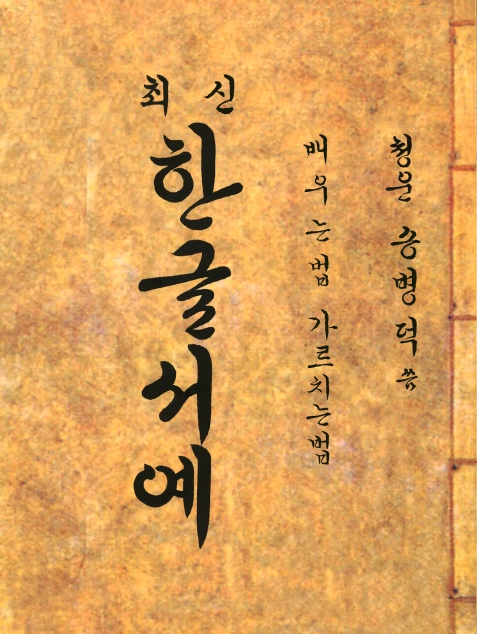 최신
한글서예
배우는법 가르치는법
청운 송병덕 씀